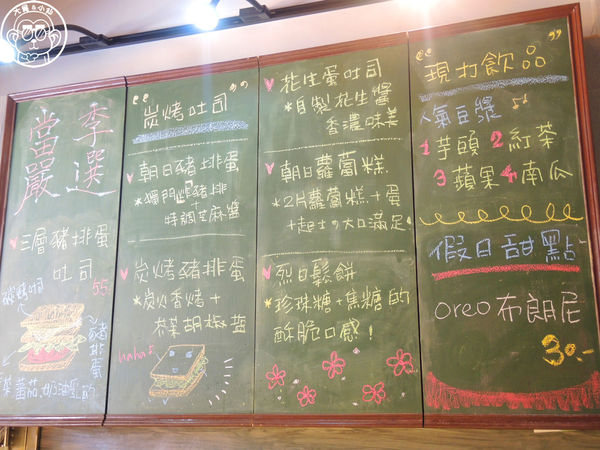 大腹&小肚
當季
嚴選
三層豬排蛋
吐司
55
炭烤吐司
豬排蛋
炭烤吐司
朝日豬排蛋
*獨門炸豬排
+
特調芝麻醬
炭烤豬排蛋
*炭火香烤+
芥茉胡椒醬
haha
花生蛋吐司
*自製花生醬
香濃味美
朝日蘿蔔糕
*2片蘿蔔糕+蛋
+起士の大口滿足
烈日鬆餅
*珍珠糖+焦糖的
酥脆口感!
"現打飲品"
人氣豆漿
1芋頭 2紅茶
3蘋果 4南瓜
假日甜點
oreo布朗尼
30.-